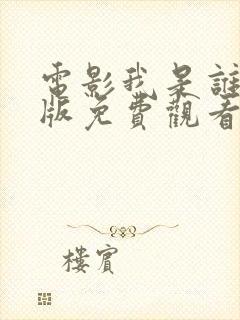 電影我是誰
版免費觀看
樓賓